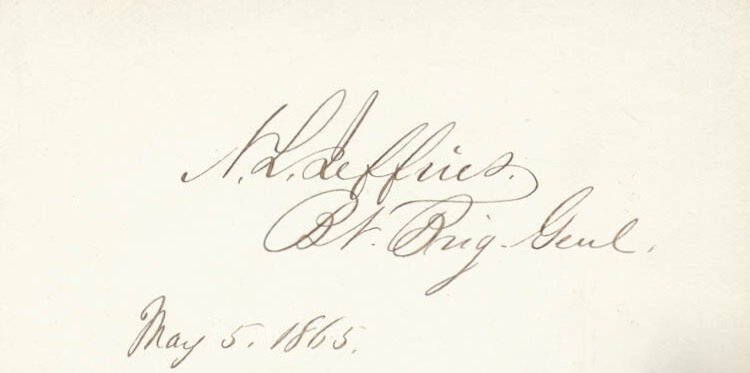 N. L. Jeffries.
Bt. Brig. Genl.
May 5. 1865.